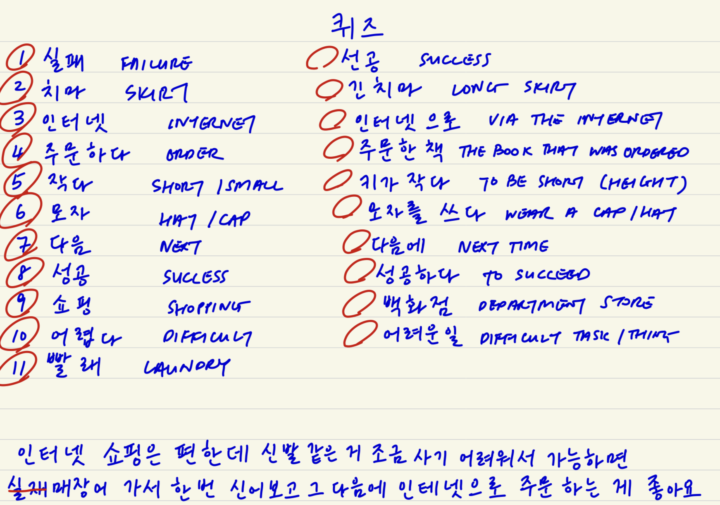 퀴즈
1 실패 FAILURE 선공 SUCCESS
2 치마 SKIRT 긴 치마 LONG SKIRT
3 인터넷 INTERNET 인터넷으로 VIA THE INTERNET
4 주문하다 ORDER 주문한 책 THE BOOK THAT WAS ORDERED
5 작다 SHORT / SMALL 키가 작다 TO BE SHORT (HEIGHT)
6 모자 HAT / CAP 모자를 쓰다 WEAR A CAP / HAT
7 다음 NEXT 다음에 NEXT TIME
8 성공 SUCCESS 성공하다 TO SUCCEED
9 쇼핑 SHOPPING 백화점 DEPARTMENT STORE
10 어렵다 DIFFICULT 어려운 일 DIFFICULT TASK / THING
11 빨래 LAUNDRY
인터넷 쇼핑은 편한데 신발 같은 거 조금 사기 어려워서 가능하면
실재 매장어 가서 한번 신어보고 그 다음에 인테넷으로 주문 하는 게 좋아요